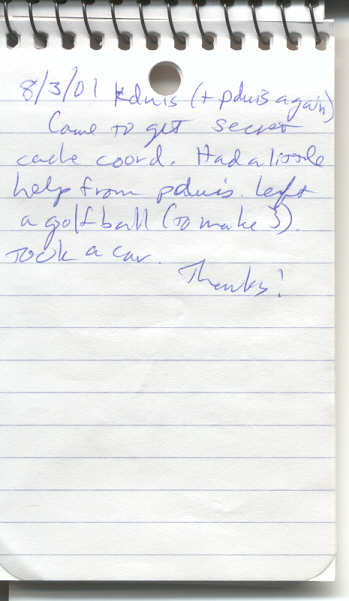 8/3/01 kduis (+ pduis again)
Came to get secret
cache coord. Had a little
help from pduis. Left
a golf ball (to make 3).
Took a car.
Thanks!